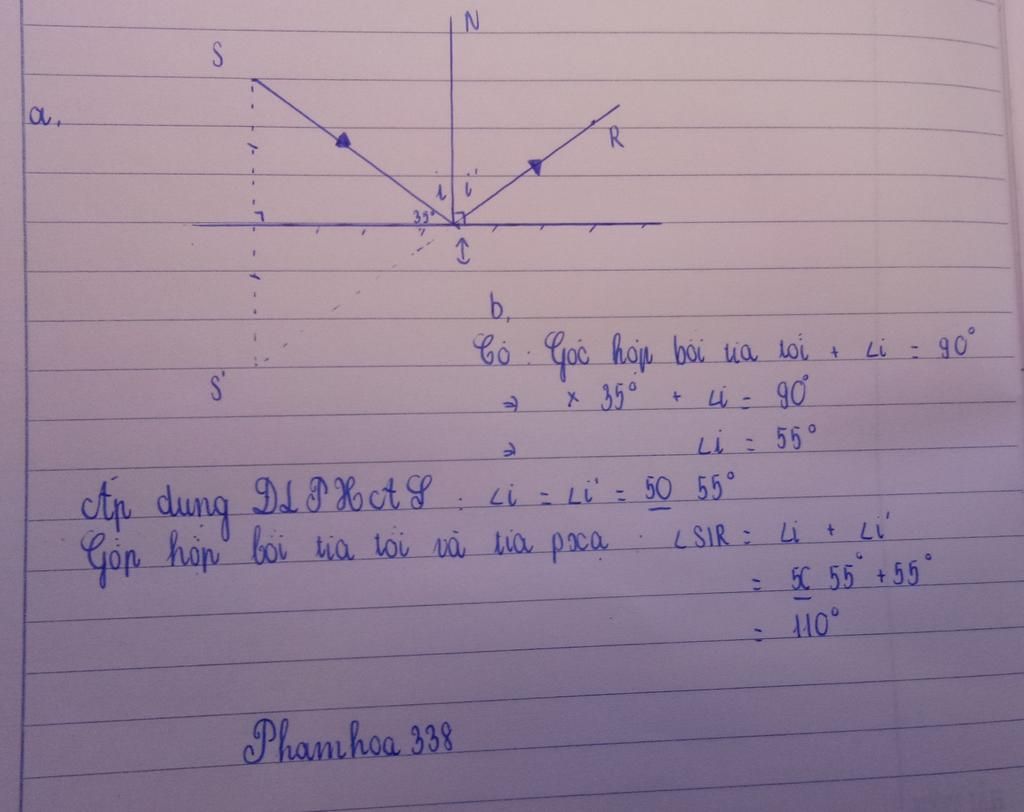 N
S
a,
R
i i'
35°
I
b,
S'
Có : Góc hợp bởi tia tới + ∠i = 90°
⇒ × 35° + ∠i = 90°
⇒ ∠i = 55°
Áp dụng ĐLPXAS : ∠i = ∠i' = 50 55°
Góp hợp bởi tia tới và tia pxạ : ∠SIR = ∠i + ∠i'
= 55° + 55°
= 110°
Phamhoa 338